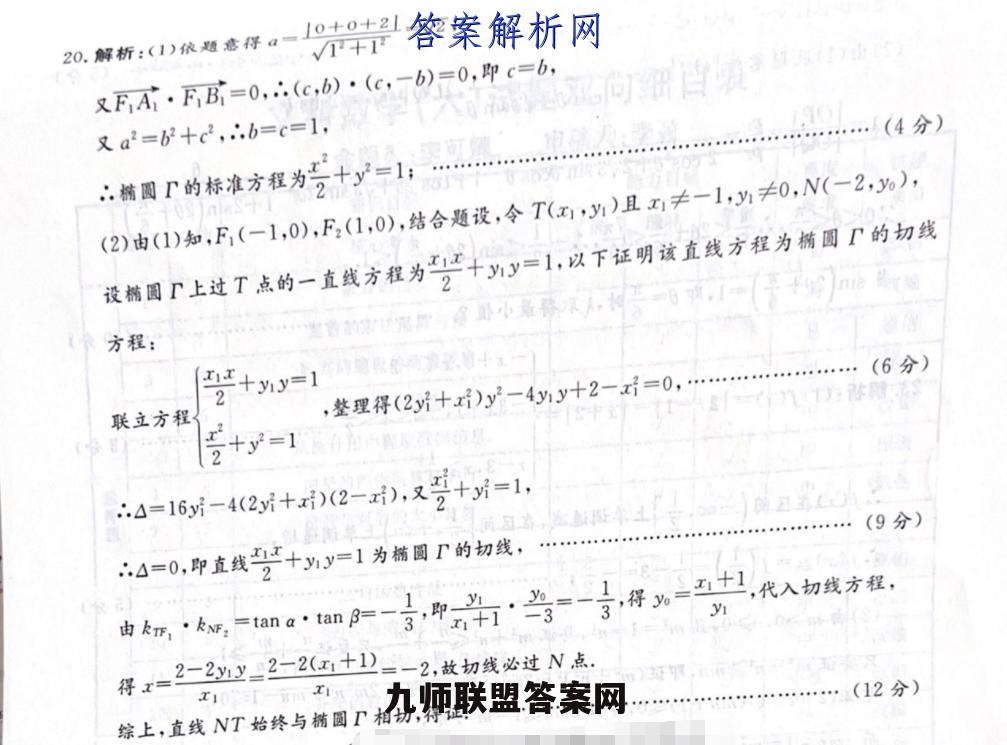 20. 解析：(1)依题意得 a=|0+0+2|/√(1²+1²)
答案解析网
又F₁A₁·F₁B₁=0,∴(c,b)·(c,-b)=0,即 c=b,
又 a²=b²+c²,∴b=c=1,
∴椭圆 Γ 的标准方程为x²/2+y²=1; ……………… (4 分)
(2)由(1)知,F₁(-1,0),F₂(1,0),结合题设,令 T(x₁,y₁)且 x₁≠-1,y₁≠0,N(-2,y₀),
设椭圆 Γ 上过 T 点的一直线方程为x₁x/2+y₁y=1,以下证明该直线方程为椭圆 Γ 的切线
方程;
联立方程{x₁x/2+y₁y=1
x²/2+y²=1
,整理得(2y₁²+x₁²)y²-4y₁y+2-x₁²=0, ……………… (6 分)
∴Δ=16y₁²-4(2y₁²+x₁²)(2-x₁²),又x₁²/2+y₁²=1,
∴Δ=0,即直线x₁x/2+y₁y=1 为椭圆 Γ 的切线, ……………… (9 分)
由 k_TF₁·k_NF₂=tan α·tan β=-1/3,即y₁/(x₁+1)·y₀/-3=-1/3,得 y₀=(x₁+1)/y₁,代入切线方程,
得 x=(2-2y₁y)/x₁=(2-2(x₁+1))/x₁=-2,故切线必过 N 点.
九师联盟答案网
综上,直线 NT 始终与椭圆 Γ 相切,得证. ……………… (12 分)